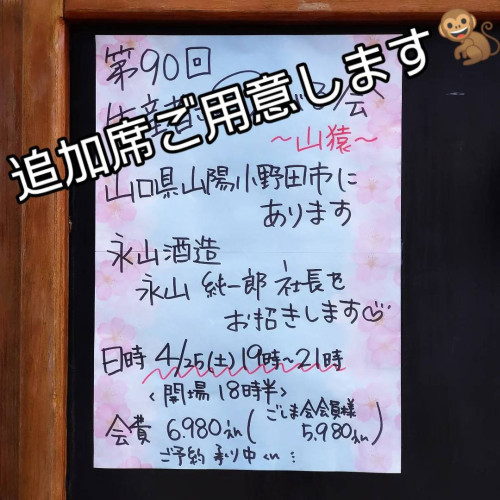 第90回
生産者 会
追加席ご用意します
〜山猿〜
山口県山陽小野田市に
あります
永山酒造
永山 純一郎 社長を
お招きします
日時 4/25(土) 19時〜21時
<開場 18時半>
会費 6.980 (ごしま会会員様 5.980)
ご予約 承り中